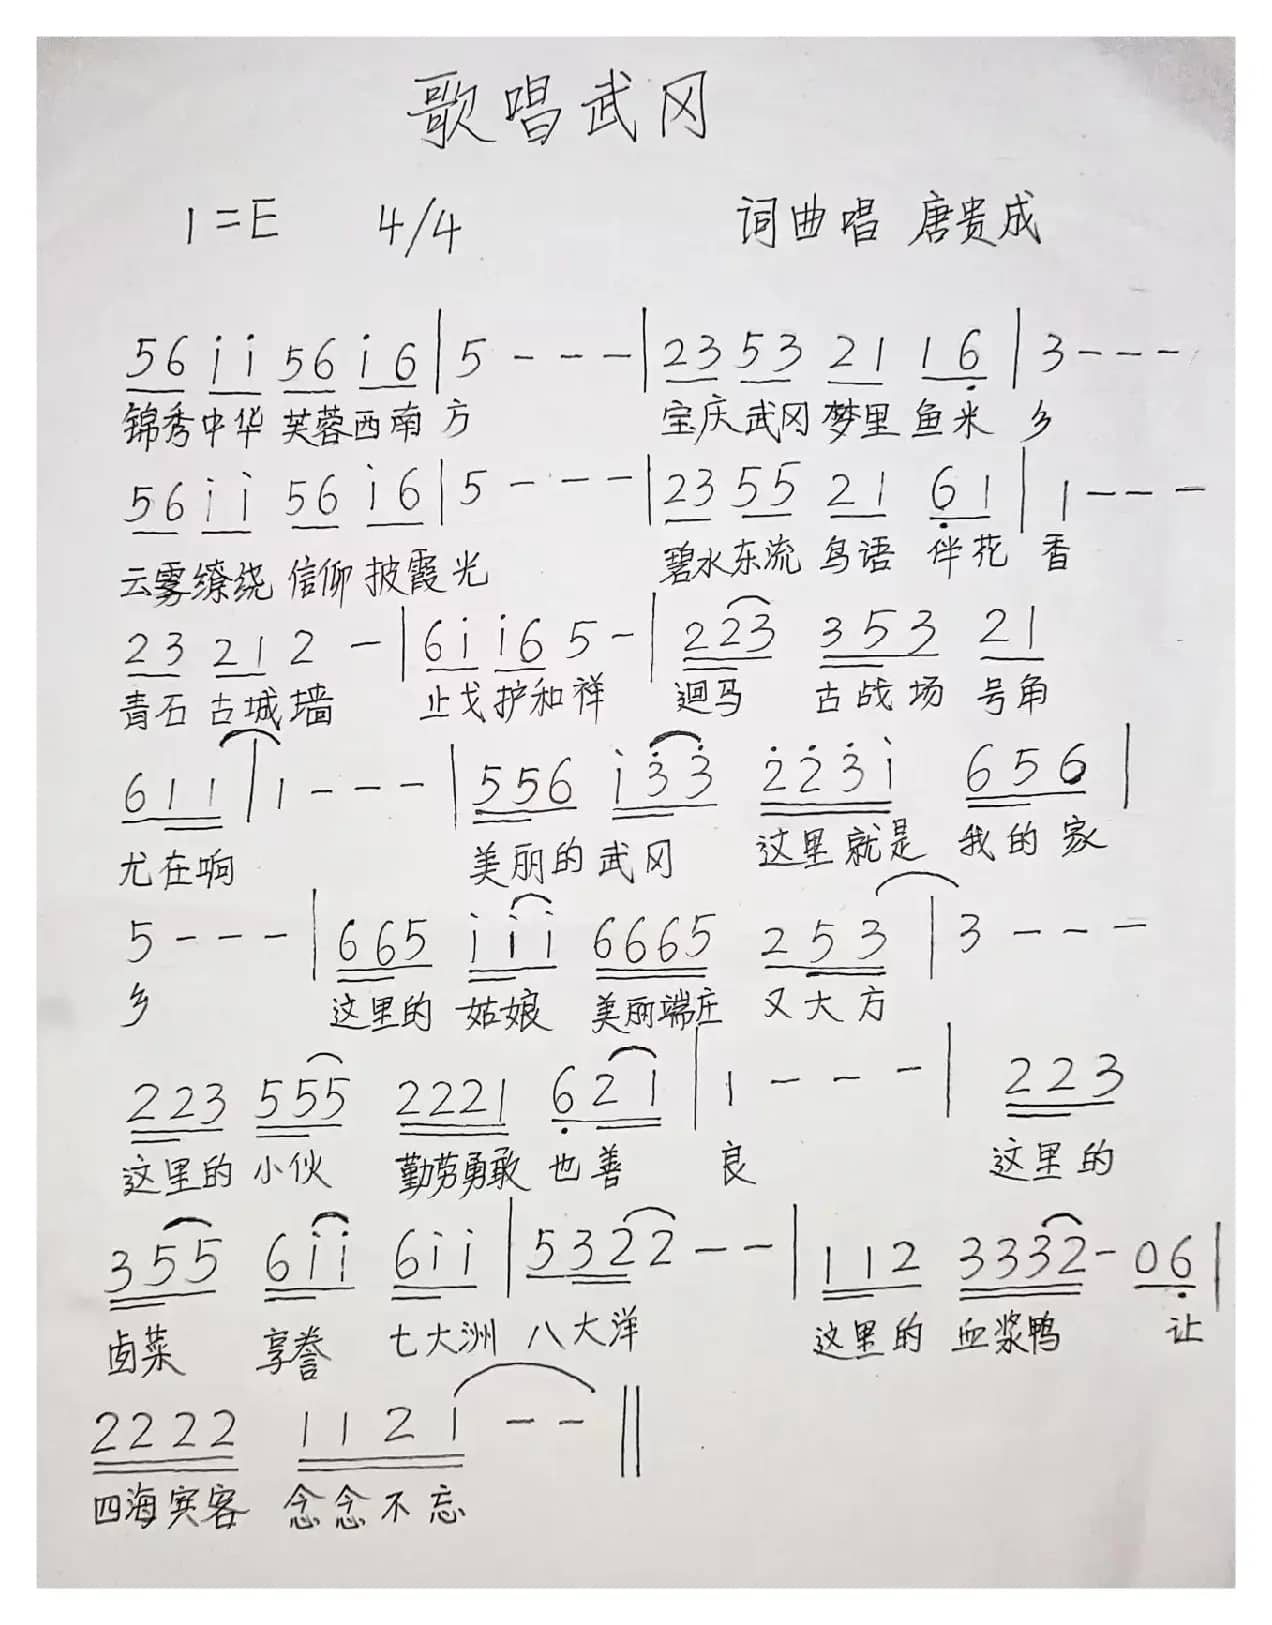 歌唱武冈
1=E 4/4 词曲唱 唐贵成
56 i̇i̇ 56 i̇6 | 5 - - - | 23 53 21 16̣ | 3 - - -
锦秀中华 芙蓉西南方 宝庆武冈 梦里 鱼米 乡
56 i̇i̇ 56 i̇6 | 5 - - - | 23 55 21 6̣1 | 1 - - -
云雾缭绕 信仰披霞光 碧水东流 鸟语 伴花 香
23 21 2 - | 6i̇ i̇6 5 - | 223 353 21
青石 古城墙 止戈护和祥 迴马 古战场 号角
611 | 1 - - - | 556 i̇3̇3̇ 2̇2̇3̇i̇ 656 |
尤在响 美丽的 武冈 这里就是 我的家
5 - - - | 665 i̇i̇i̇ 6665 253 | 3 - - -
乡 这里的 姑娘 美丽端庄 又大方
223 555 2221 6̣21 | 1 - - - | 223
这里的 小伙 勤劳勇敢 也善 良 这里的
355 6i̇i̇ 6i̇i̇ | 5322 - - | 112 3332 - 06̣ |
卤菜 享誉 七大洲 八大洋 这里的 血浆鸭 让
2222 1121 - - ‖
四海宾客 念念不忘